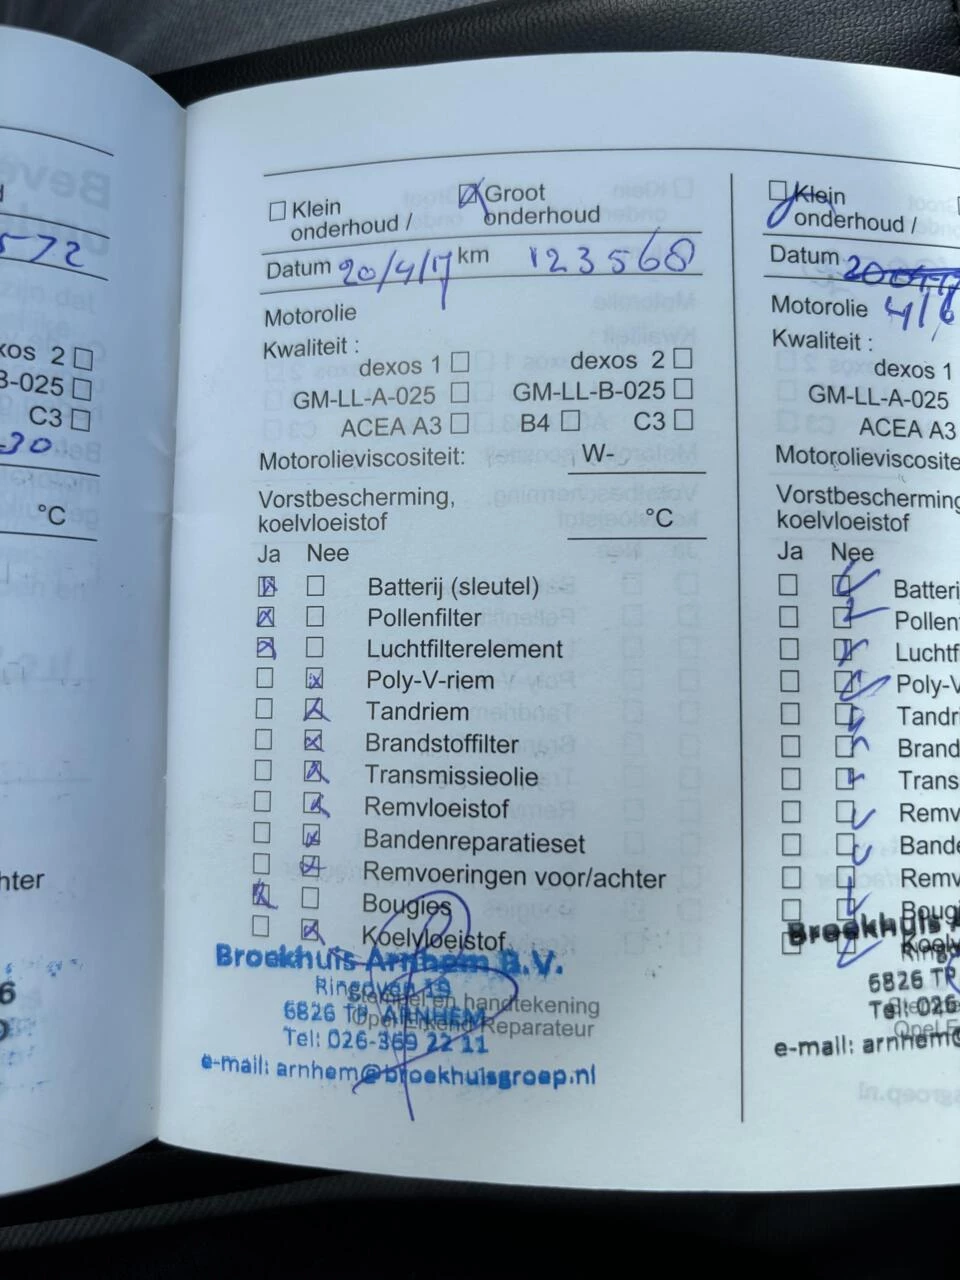 572
exos 2
B-025
C3
-30
°C
hter
Klein
onderhoud /
Groot
onderhoud
Datum 20/4/17 km 123568
Motorolie
Kwaliteit :
dexos 1 dexos 2
GM-LL-A-025 GM-LL-B-025
ACEA A3 B4 C3
Motorolieviscositeit: W-
Vorstbescherming,
koelvloeistof °C
Ja Nee
Batterij (sleutel)
Pollenfilter
Luchtfilterelement
Poly-V-riem
Tandriem
Brandstoffilter
Transmissieolie
Remvloeistof
Bandenreparatieset
Remvoeringen voor/achter
Bougies
Koelvloeistof
Broekhuis Arnhem B.V.
Ringoven 19
Stempel en handtekening
6826 TP ARNHEM
Opel Erkend Reparateur
Tel: 026-369 22 11
e-mail: arnhem@broekhuisgroep.nl
Klein
onderhoud /
Datum
Motorolie 4/6
Kwaliteit :
dexos 1
GM-LL-A-025
ACEA A3
Motorolieviscosite
Vorstbescherming
koelvloeistof
Ja Nee
Batteri
Pollen
Luchtf
Poly-V
Tandri
Brand
Transm
Remv
Bande
Remv
Bougi
Broekhuis A
Koelv
6826 TP
Tel: 026
e-mail: arnhem@